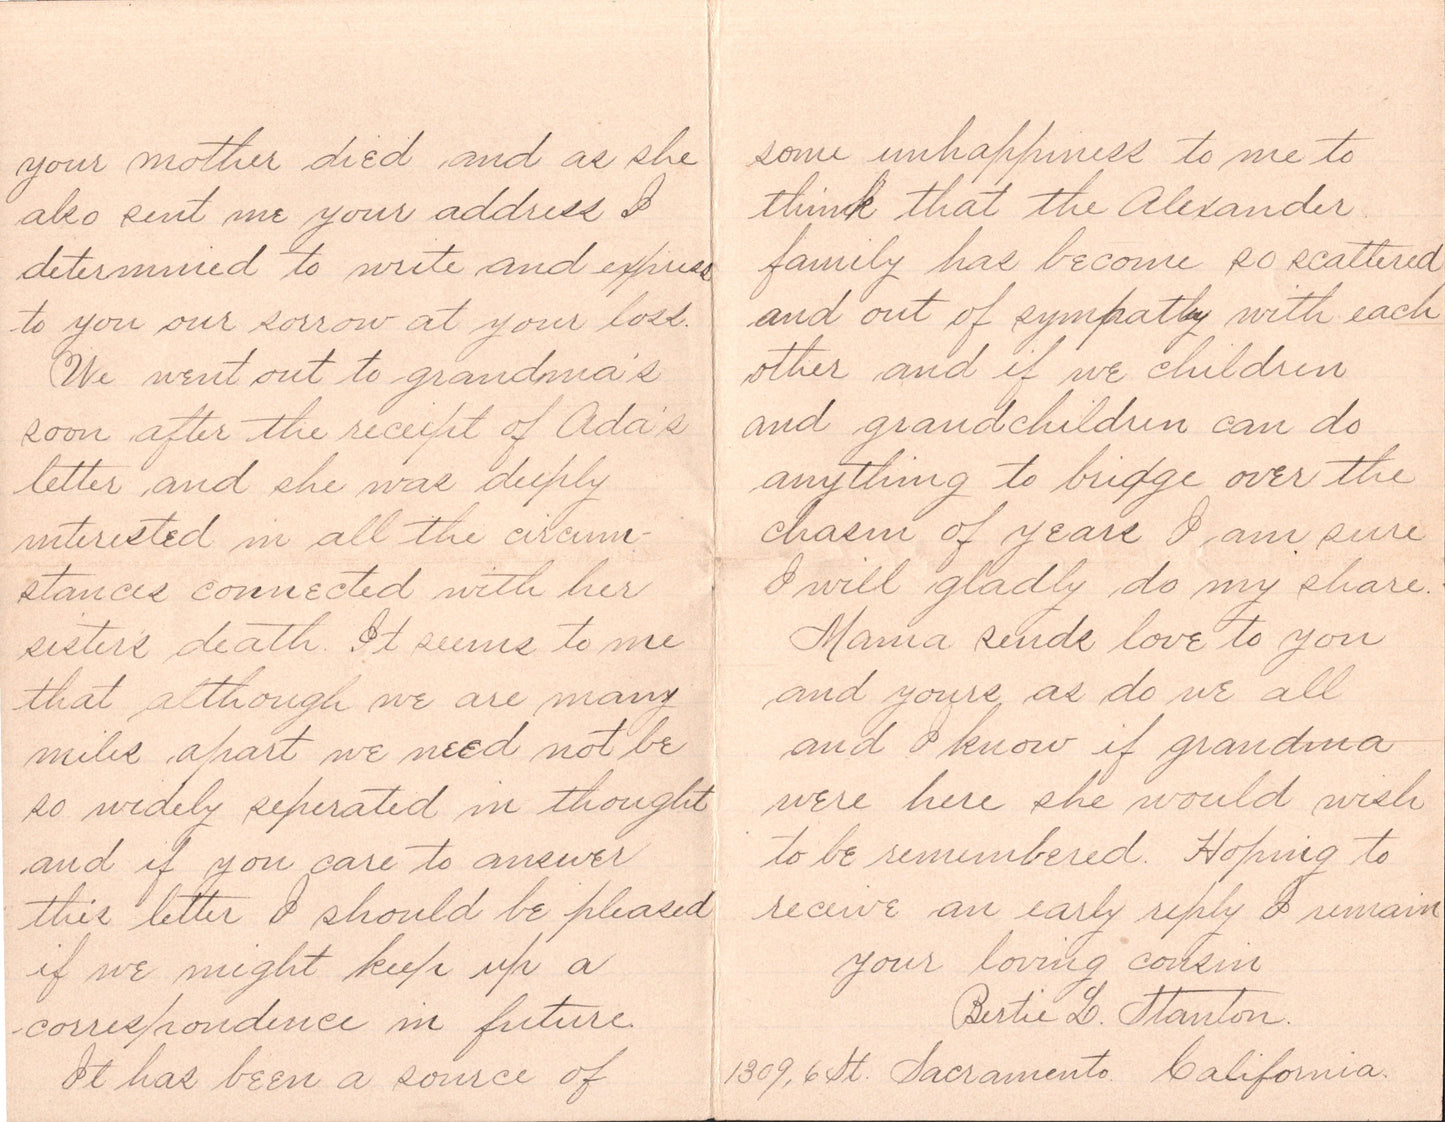 your mother died and as she
also sent me your address I
determined to write and express
to you our sorrow at your loss.
We went out to grandma's
soon after the receipt of Ada's
letter and she was deeply
interested in all the circum-
stances connected with her
sister's death. It seems to me
that although we are many
miles apart we need not be
so widely seperated in thought
and if you care to answer
this letter I should be pleased
if we might keep up a
correspondence in future.
It has been a source of
some unhappiness to me to
think that the Alexander
family has become so scattered
and out of sympathy with each
other and if we children
and grandchildren can do
anything to bridge over the
chasm of years I am sure
I will gladly do my share.
Mama sends love to you
and yours as do we all
and I know if grandma
were here she would wish
to be remembered. Hoping to
receive an early reply I remain
your loving cousin
Bertie L. Stanton.
1309, 6 St. Sacramento California.